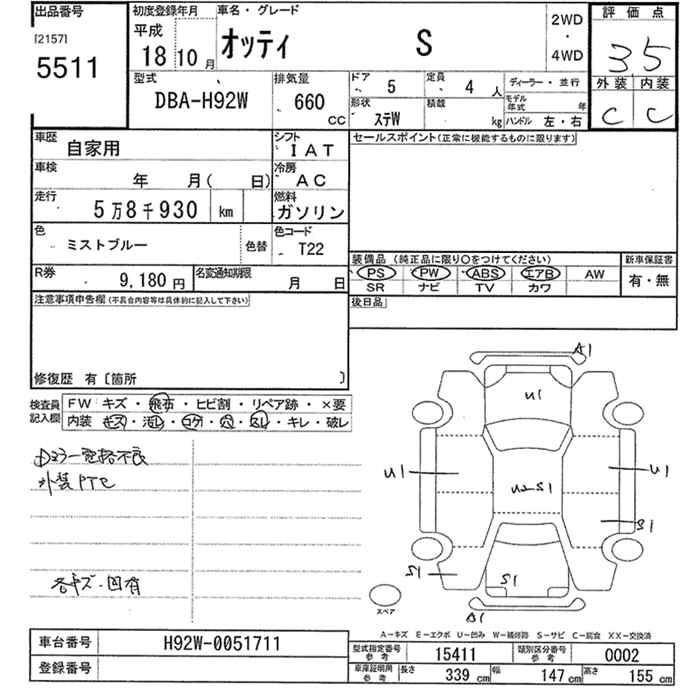 出品番号 初度登録年月 車名・グレード 2WD ・ 4WD 評価点
[2157] 5511 平成 18 10月 オッティ S 35
型式 排気量 ドア 5 定員 4人 ディーラー・並行 外装 内装
DBA-H92W 660 CC 形状 ステW 積載 kg モデル年式 年 ハンドル 左・右 C C
車歴 自家用 シフト IAT セールスポイント(正常に機能するものに限ります)
車検 年 月( 日) 冷房 AC
走行 5万8千930 km 燃料 ガソリン
色 ミストブルー 色替 色コード T22
装備品 (純正品に限り○をつけてください) 新車保証書
PS PW ABS エアB AW 有・無
SR ナビ TV カワ
R券 9,180円 名変通知期限 月 日
後日品
注意事項申告欄(不具合内容等は具体的に記入して下さい)
修復歴 有〔箇所 〕
検査員記入欄 FW キズ・飛石・ヒビ割・リペア跡・×要
内装 キズ・汚レ・コゲ・穴・スレ・キレ・破レ
外装PTC
A1
U1
U1
U1
U2 S1
B1
S1
S1
A1
スペア
A-キズ E-エクボ U-凹み W-補修跡 S-サビ C-腐食 XX-交換済
車台番号 H92W-0051711
登録番号
型式指定番号 参考 15411 類別区分番号 参考 0002
車庫証明用 参考 長さ 339cm 幅 147cm 高さ 155cm